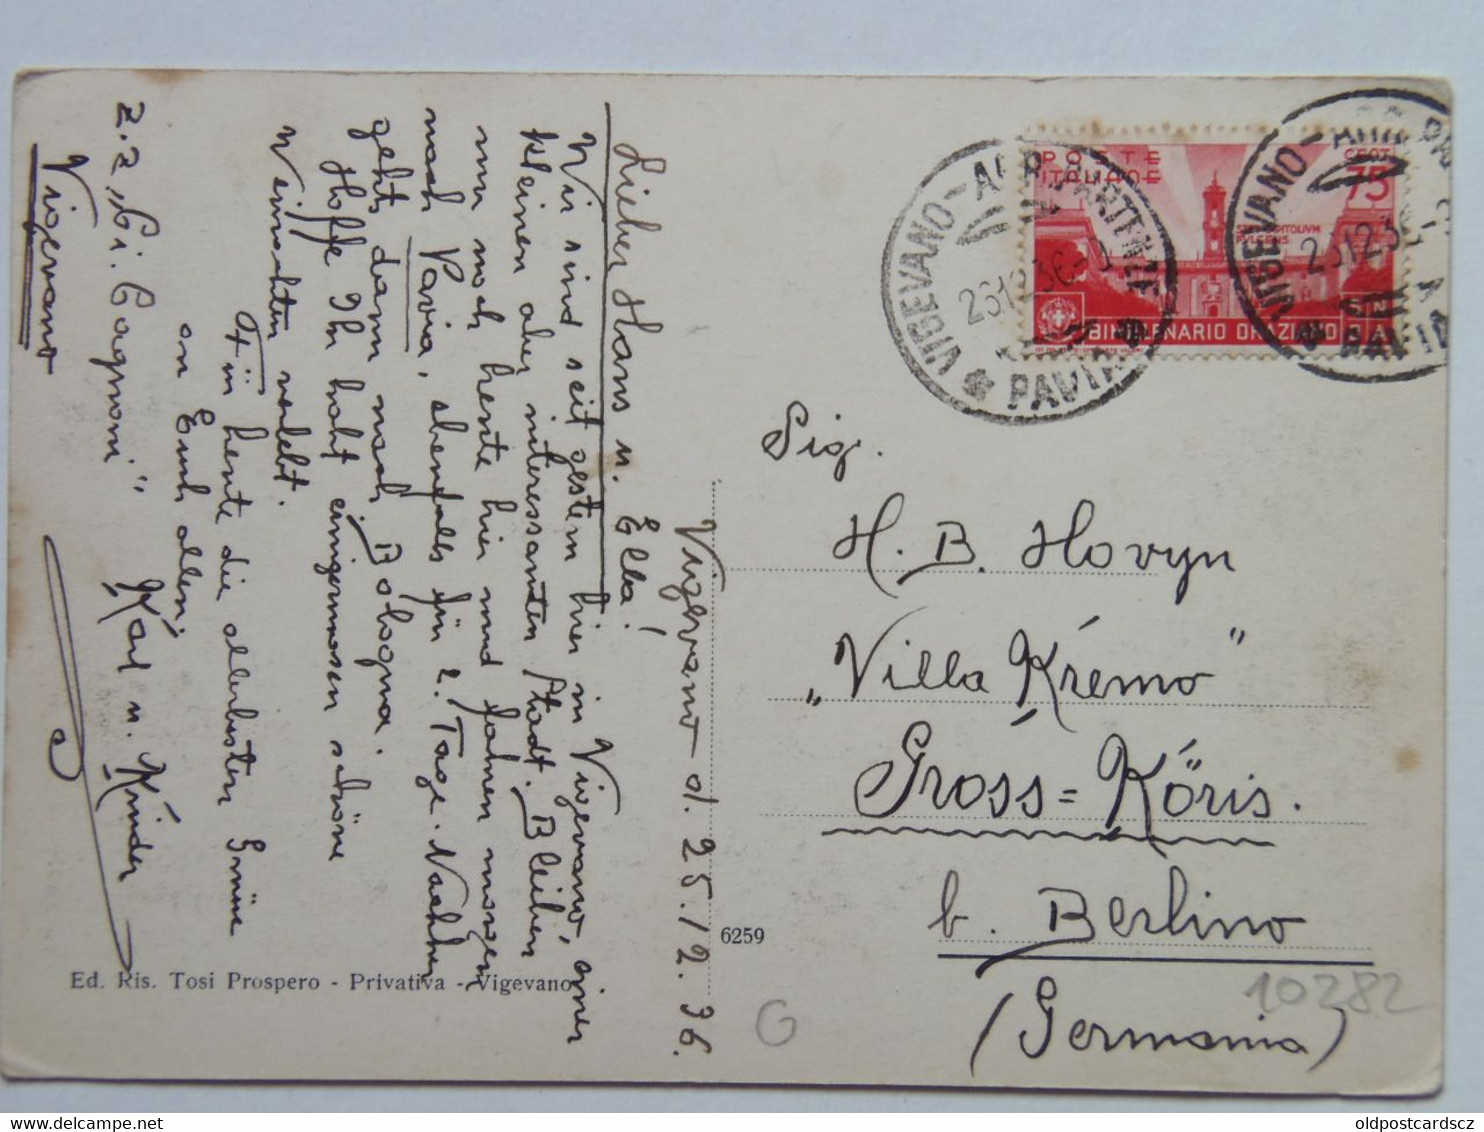 Vigevano d. 25.12.36.
Lieber Hans u. Ella!
Wir sind seit gestern hier in Vigevano, einer
kleinen aber interessanten Stadt. Bleiben
nur noch heute hier und fahren morgen
nach Pavia, ebenfalls für 2. Tage. Nachher
geht's dann nach Bologna.
Hoffe Ihr habt einigermassen schöne
Weinachten verlebt.
Für heute die allerbesten Grüsse
an Euch allen,
Karl u. Kinder
z.Z.
Vigevano
Ed. Ris. Tosi Prospero - Privativa - Vigevano
6259
POSTE
ITALIANE
CENT
75
BIMILLENARIO ORAZIANO
VIGEVANO
PAVIA
VIGEVANO
PAVIA
Sig.
H. B. Hovyn
„Villa Kremo"
Gross=Köris.
b. Berlino
(Germania)
10282
G
oldpostcardscz
delcampe.net